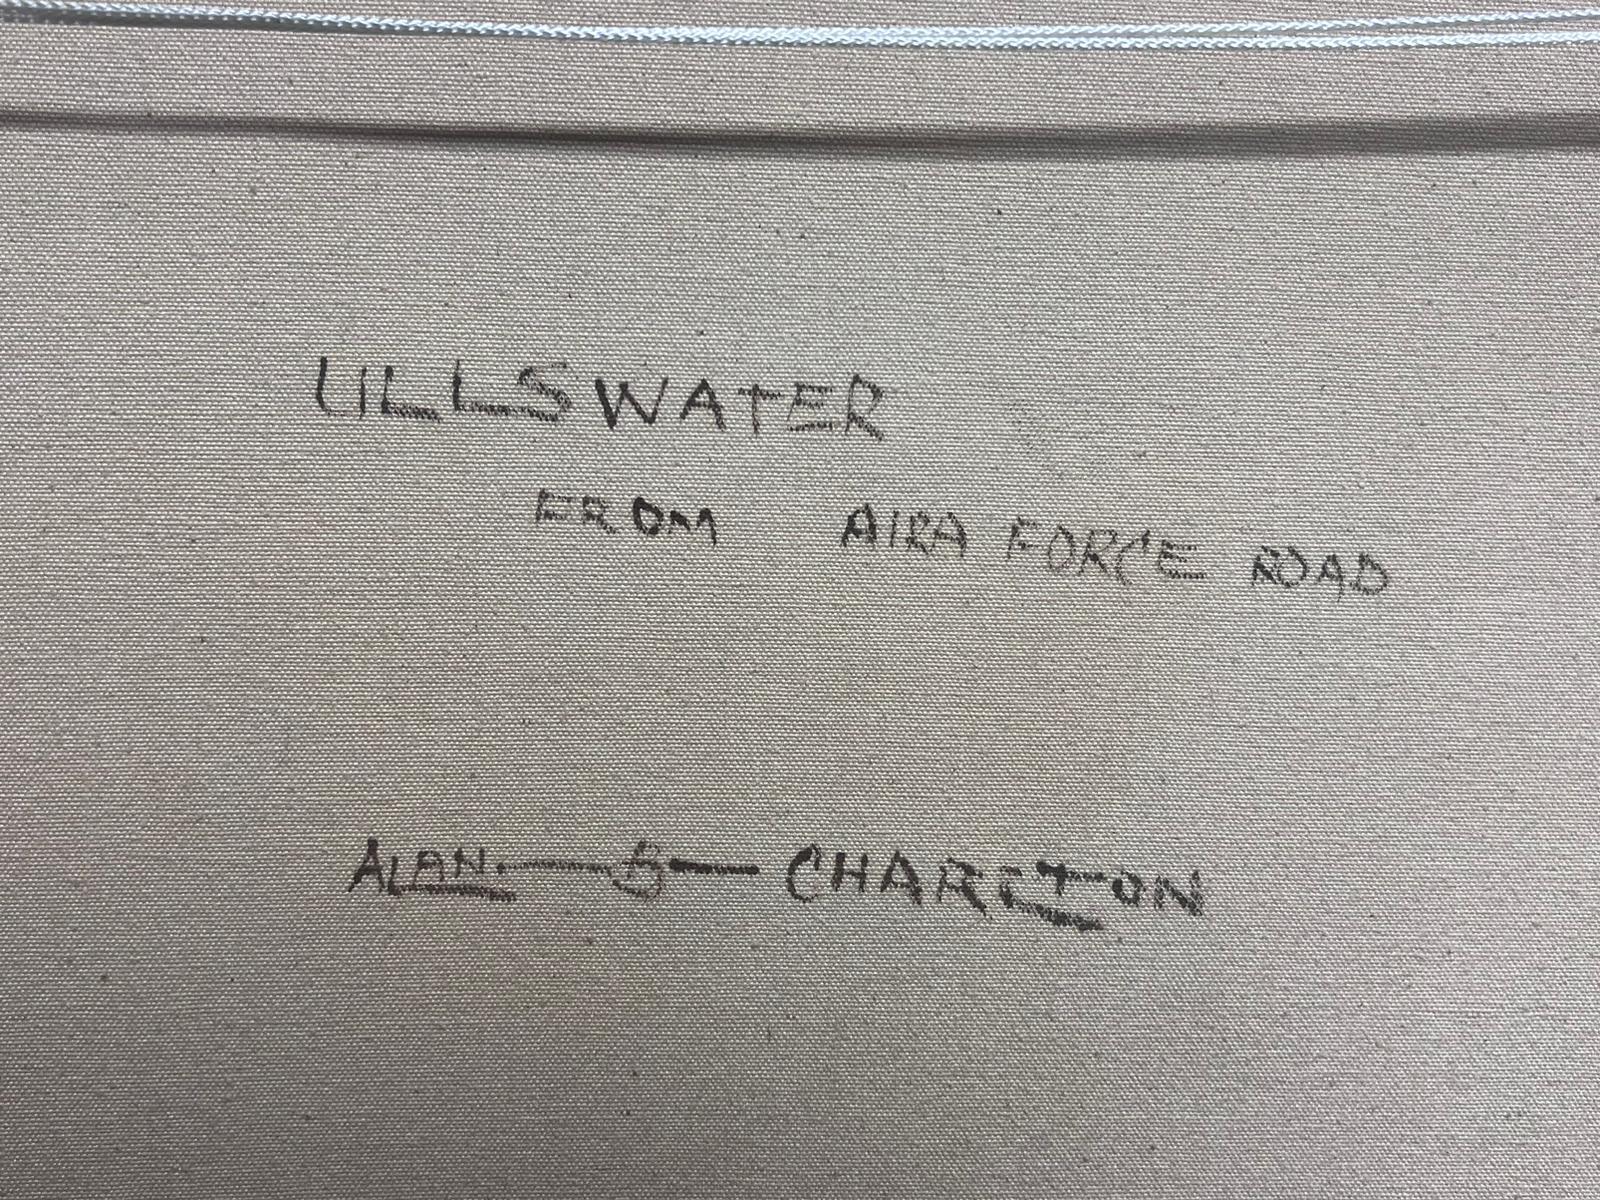 ULLSWATER
FROM AIRA FORCE ROAD
ALAN. — S — CHARLTON